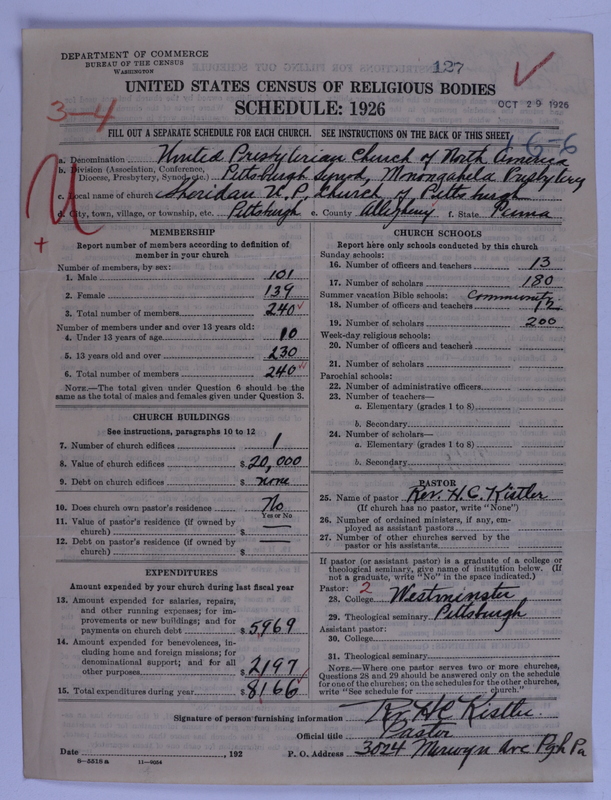 DEPARTMENT OF COMMERCE
BUREAU OF THE CENSUS
WASHINGTON
127
UNITED STATES CENSUS OF RELIGIOUS BODIES
SCHEDULE: 1926
OCT 29 1926
3-4
FILL OUT A SEPARATE SCHEDULE FOR EACH CHURCH. SEE INSTRUCTIONS ON THE BACK OF THIS SHEET
16-6
a. Denomination United Presbyterian Church of North America
b. Division (Association, Conference, Diocese, Presbytery, Synod, etc.) Pittsburgh Synod, Monongahela Presbytery
c. Local name of church Sheridan U.P. Church of Pittsburgh
d. City, town, village, or township, etc. Pittsburgh e. County Allegheny f. State Penna
MEMBERSHIP
Report number of members according to definition of member in your church
Number of members, by sex:
1. Male 101
2. Female 139
3. Total number of members 240
Number of members under and over 13 years old:
4. Under 13 years of age 10
5. 13 years old and over 230
6. Total number of members 240
NOTE.—The total given under Question 6 should be the same as the total of males and females given under Question 3.
CHURCH BUILDINGS
See instructions, paragraphs 10 to 12
7. Number of church edifices 1
8. Value of church edifices $20,000
9. Debt on church edifices $ none
10. Does church own pastor's residence? No
Yes or No
11. Value of pastor's residence (if owned by church) $ —
12. Debt on pastor's residence (if owned by church) $ —
EXPENDITURES
Amount expended by your church during last fiscal year
13. Amount expended for salaries, repairs, and other running expenses; for improvements or new buildings; and for payments on church debt $5969
14. Amount expended for benevolences, including home and foreign missions; for denominational support; and for all other purposes $2197
15. Total expenditures during year $8166
CHURCH SCHOOLS
Report here only schools conducted by this church
Sunday schools:
16. Number of officers and teachers 13
17. Number of scholars 180
Summer vacation Bible schools: Community
18. Number of officers and teachers 12
19. Number of scholars 200
Week-day religious schools:
20. Number of officers and teachers
21. Number of scholars
Parochial schools:
22. Number of administrative officers
23. Number of teachers—
a. Elementary (grades 1 to 8)
b. Secondary
24. Number of scholars—
a. Elementary (grades 1 to 8)
b. Secondary
PASTOR
25. Name of pastor Rev. H.C. Kistler
(If church has no pastor, write "None")
26. Number of ordained ministers, if any, employed as assistant pastors
27. Number of other churches served by the pastor or his assistants
If pastor (or assistant pastor) is a graduate of a college or theological seminary, give name of institution below. (If not a graduate, write "No" in the space indicated.)
Pastor: 2
28. College Westminster
29. Theological seminary Pittsburgh
Assistant pastor:
30. College
31. Theological seminary
NOTE.—Where one pastor serves two or more churches, Questions 28 and 29 should be answered only on the schedule for one of the churches; on the schedules for the other churches, write "See schedule for church."
Signature of person furnishing information Rev HC Kistler
Official title Pastor
Date , 192 P. O. Address 3024 Merwyn Ave Pgh Pa
8-5518 a 11-9054